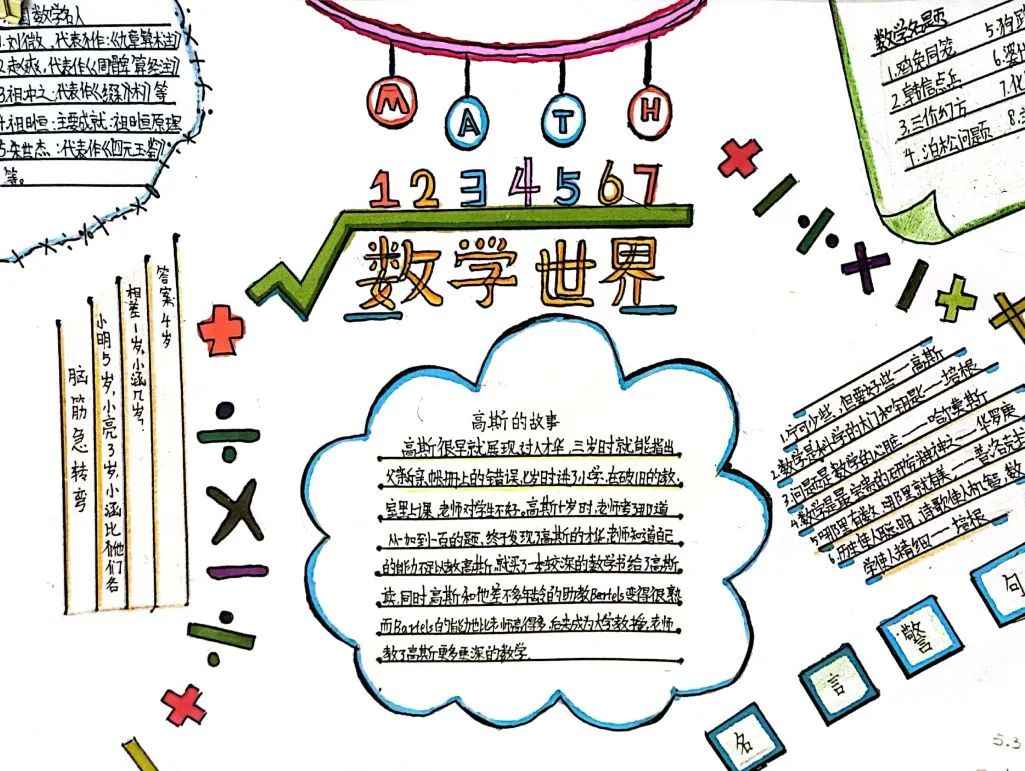 数学名人
1.刘徽,代表作:《九章算术注》
2.赵爽,代表作《周髀算经注》
3.祖冲之:代表作《缀术》等
4.祖暅:主要成就:祖暅原理
5.朱世杰:代表作《四元玉鉴》
等。
MATH
1234567
数学世界
数学名题
1.鸡兔同笼
2.韩信点兵
3.三阶幻方
4.泊松问题
5.狗
6.婆
7.化
8.
脑筋急转弯
小明5岁,小亮3岁,小涵比他们各
相差1岁,小涵几岁?
答案:4岁
高斯的故事
高斯很早就展现过人才华,三岁时就能指出
父亲帐册上的错误,七岁时进了小学,在破旧的教
室里上课,老师对学生不好。高斯十岁时,老师考了那道
从一加到一百的题,终于发现了高斯的才华,老师知道自己
的能力不足以教高斯,就买了一本较深的数学书给了高斯
读,同时高斯和他差不多年龄的助教Bartels变得很熟
而Bartels的能力也比老师高得多,后来成为大学教授,老师
教了高斯更多更深的数学.
1.宁可少些,但要好些—高斯
2.数学是科学的大门和钥匙—培根
3.问题是数学的心脏——哈尔莫斯
4.数学是最宝贵的研究精神之一华罗庚
5.哪里有数,哪里就有美——普洛克
6.历史使人聪明,诗歌使人机智,数
学使人精细——培根
名
言
警
句
5.3